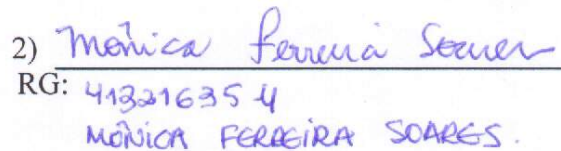 2) Mônica Ferreira Soares
RG: 413216354
MÔNICA FERREIRA SOARES.